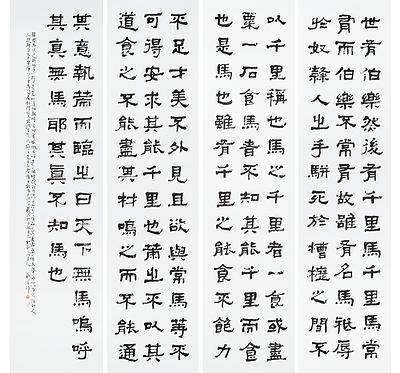 世有伯樂然後有千里馬千里馬常
有而伯樂不常有故雖有名馬祇辱
於奴隸人之手駢死於槽櫪之間不
以千里稱也馬之千里者一食或盡
粟一石食馬者不知其能千里而食
也是馬也雖有千里之能食不飽力
不足才美不外見且欲與常馬等不
可得安求其能千里也策之不以其
道食之不能盡其材鳴之而不能通
其意執策而臨之曰天下無馬嗚呼
其真無馬耶其真不知馬也